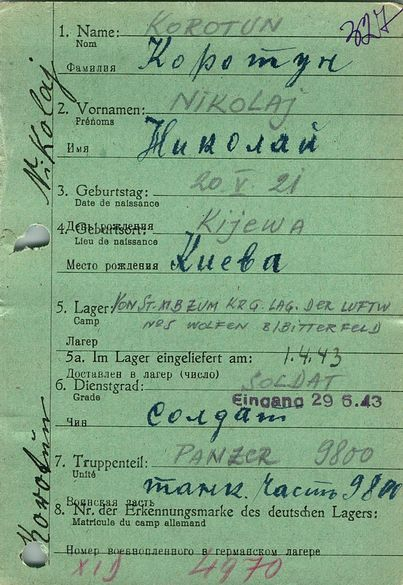 327
1. Name: KOROTUN
Nom
Фамилия Коротун
2. Vornamen: NIKOLAJ
Prénoms
Имя Николай
3. Geburtstag: 20 V. 21
Date de naissance
День рождения
4. Geburtsort: KIJEWA
Lieu de naissance
Место рождения Киева
5. Lager: VON ST. ZUM KRG. LAG. DER LUFTW
Camp No5 WOLFEN B/BITTERFELD
Лагер
5a. Im Lager eingeliefert am: 1.4.43
Доставлен в лагер (число)
6. Dienstgrad: SOLDAT
Grade Eingang 29 6.43
Чин солдат
7. Truppenteil: PANZER 9800
Unité
Воинская часть танк. часть 9800
8. Nr. der Erkennungsmarke des deutschen Lagers:
Matricule du camp allemand
Номер военнопленного в германском лагере
XI D 4970
Nikolaj
Korotun